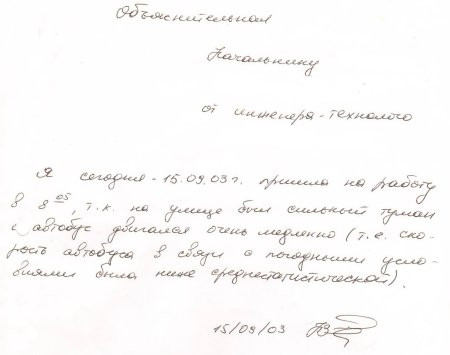 Объяснительная
Начальнику
от инженера-технолога
Я сегодня - 15.09.03 г. пришла на работу
в 8 05, т.к. на улице был сильный туман
и автобус двигался очень медленно (т.е. ско-
рость автобуса в связи с погодными усло-
виями была ниже среднестатистической).
15/09/03